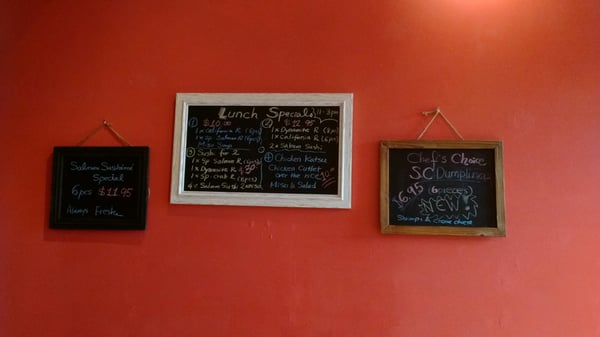 Salmon Sashimi
Special
6pcs $11.95
Always Fresh
Lunch Specials 11-3pm
① $10.00
1x California R (6pcs)
1x Sp. Salmon R (6pcs)
Miso Soup
② $12.95
1x Dynamite R (8pcs)
1x California R (6pcs)
2x Salmon Sushi
③ Sushi for 2
1x Sp Salmon R (6pcs)
1x Dynamite R $30
1x Sp. crab R (6pcs)
4x Salmon Sushi
④ Chicken Katsu
Chicken Cutlet
over the rice 10.00
Miso & Salad
Chef's Choice
SC Dumpling
$6.95 (6 pieces)
NEW!
Shrimp & Creme cheese